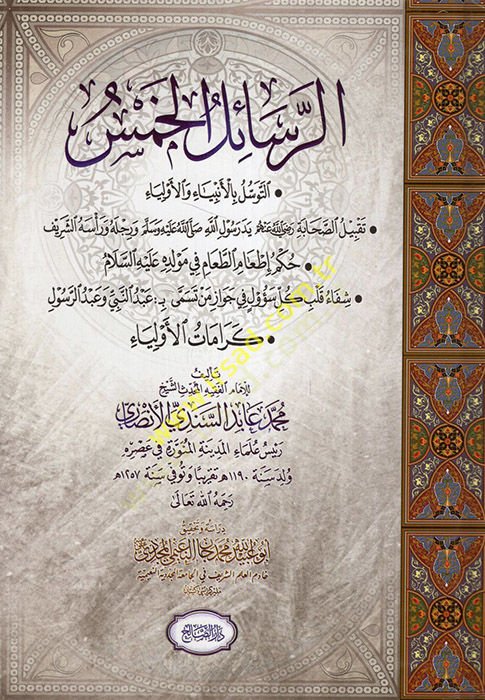 الرَّسَائِلُ الخَمْسُ
• التَّوَسُّلُ بِالأَنْبِيَاءِ وَالأَوْلِيَاءِ
• تَقْبِيلُ الصَّحَابَةِ رَضِيَ اللَّهُ عَنْهُمْ يَدَ رَسُولِ اللَّهِ صَلَّى اللَّهُ عَلَيْهِ وَسَلَّمَ وَرِجْلَهُ وَرَأْسَهُ الشَّرِيفَ
• حُكْمُ إِطْعَامِ الطَّعَامِ فِي مَوْلِدِهِ عَلَيْهِ السَّلَامُ
• شِفَاءُ قَلْبِ كُلِّ سَؤُولٍ فِي جَوَازِ مَنْ تَسَمَّى بِـ: عَبْدِ النَّبِيِّ وَعَبْدِ الرَّسُولِ
• كَرَامَاتُ الأَوْلِيَاءِ
تَأْلِيفُ
الإمام الفقيه المحدث الشيخ
مُحَمَّد عَابِد السِّنْدِيِّ الأَنْصَارِيِّ
رَئِيسُ عُلَمَاءِ المَدِينَةِ المُنَوَّرَةِ فِي عَصْرِهِ
وُلِدَ سَنَةَ ١١٩٠هـ تَقْرِيبًا وَتُوُفِّيَ سَنَةَ ١٢٥٧هـ
رَحِمَهُ اللَّهُ تَعَالَى
دراسة وتحقيق
محمد جان النعيمي
خادم العلم الشريف في الجامعة المجددية النعيمية
دار الصالح